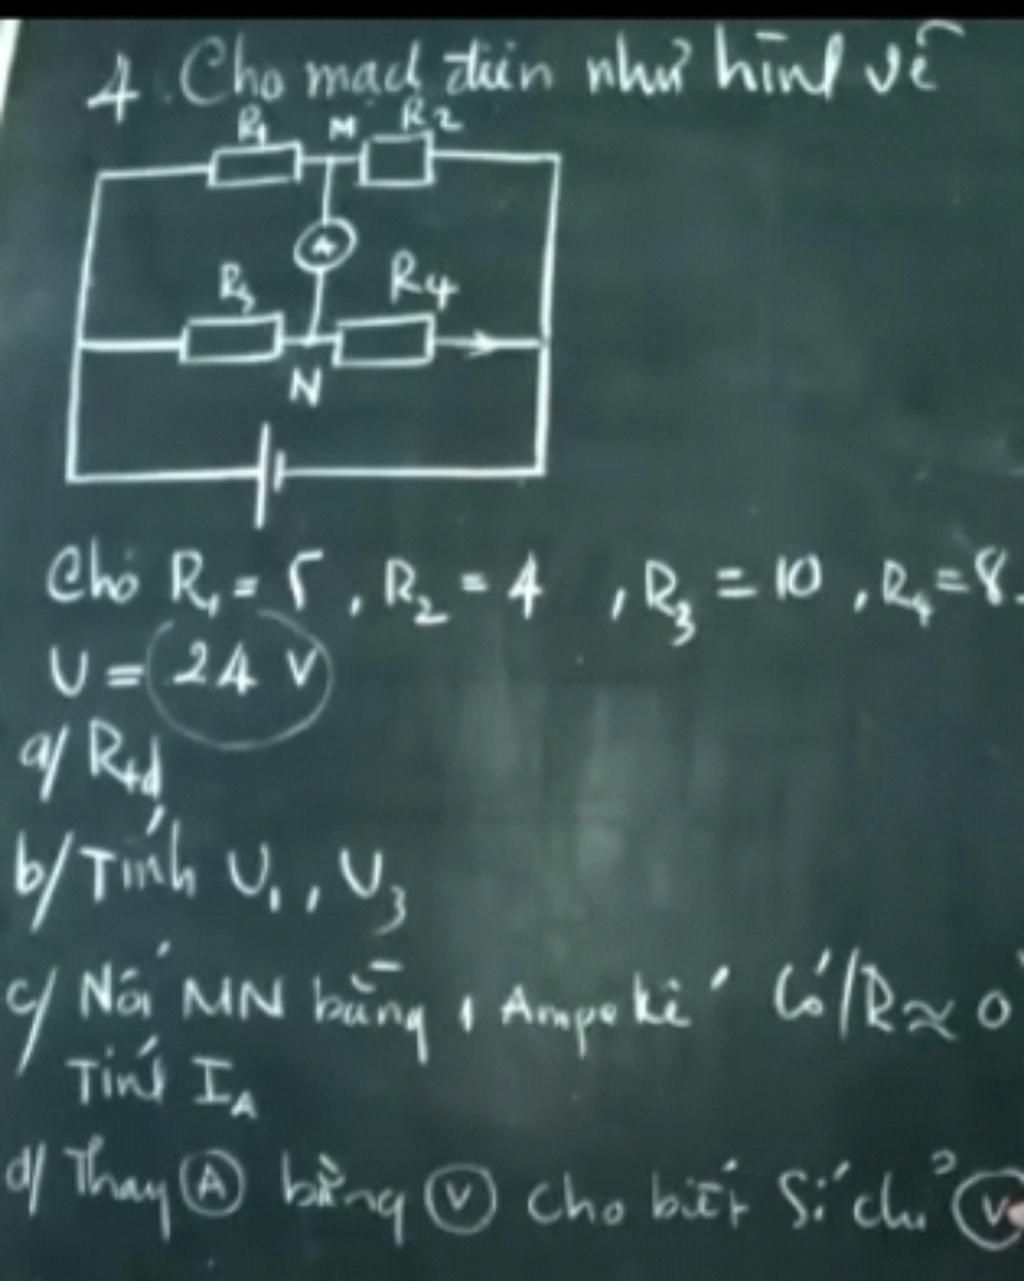 4. Cho mạch điện như hình vẽ
R1 M R2
A
R3 R4
N
Cho R1 = 5, R2 = 4, R3 = 10, R4 = 8.
U = 24 V
a/ Rtđ
b/ Tính U1, U3
c/ Nối MN bằng 1 Ampe kế có R ≈ 0
Tính IA
d/ Thay A bằng V cho biết số chỉ V